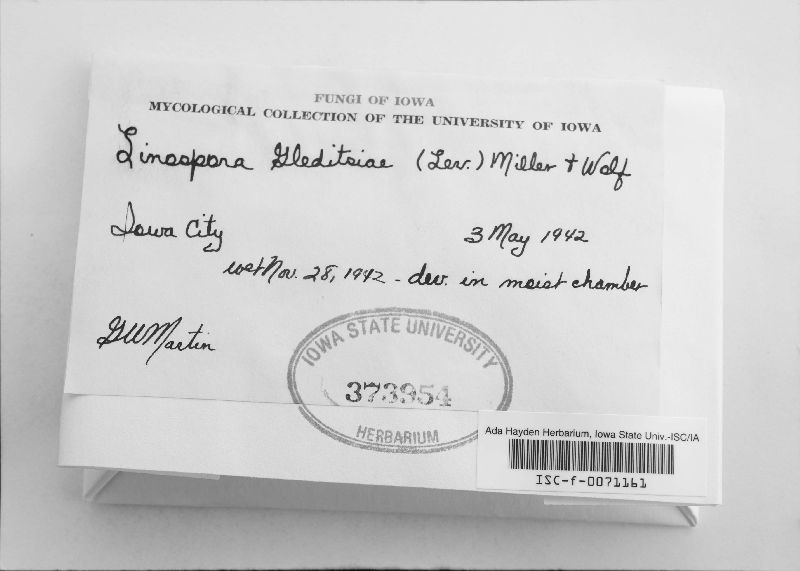 FUNGI OF IOWA
MYCOLOGICAL COLLECTION OF THE UNIVERSITY OF IOWA
Linospora Gleditsiae (Lev.) Miller & Wolf
Iowa City
3 May 1942
wet Nov. 28, 1942 - dev. in moist chamber
GW Martin
IOWA STATE UNIVERSITY
373954
HERBARIUM
Ada Hayden Herbarium, Iowa State Univ.-ISC/IA
ISC-f-0071161